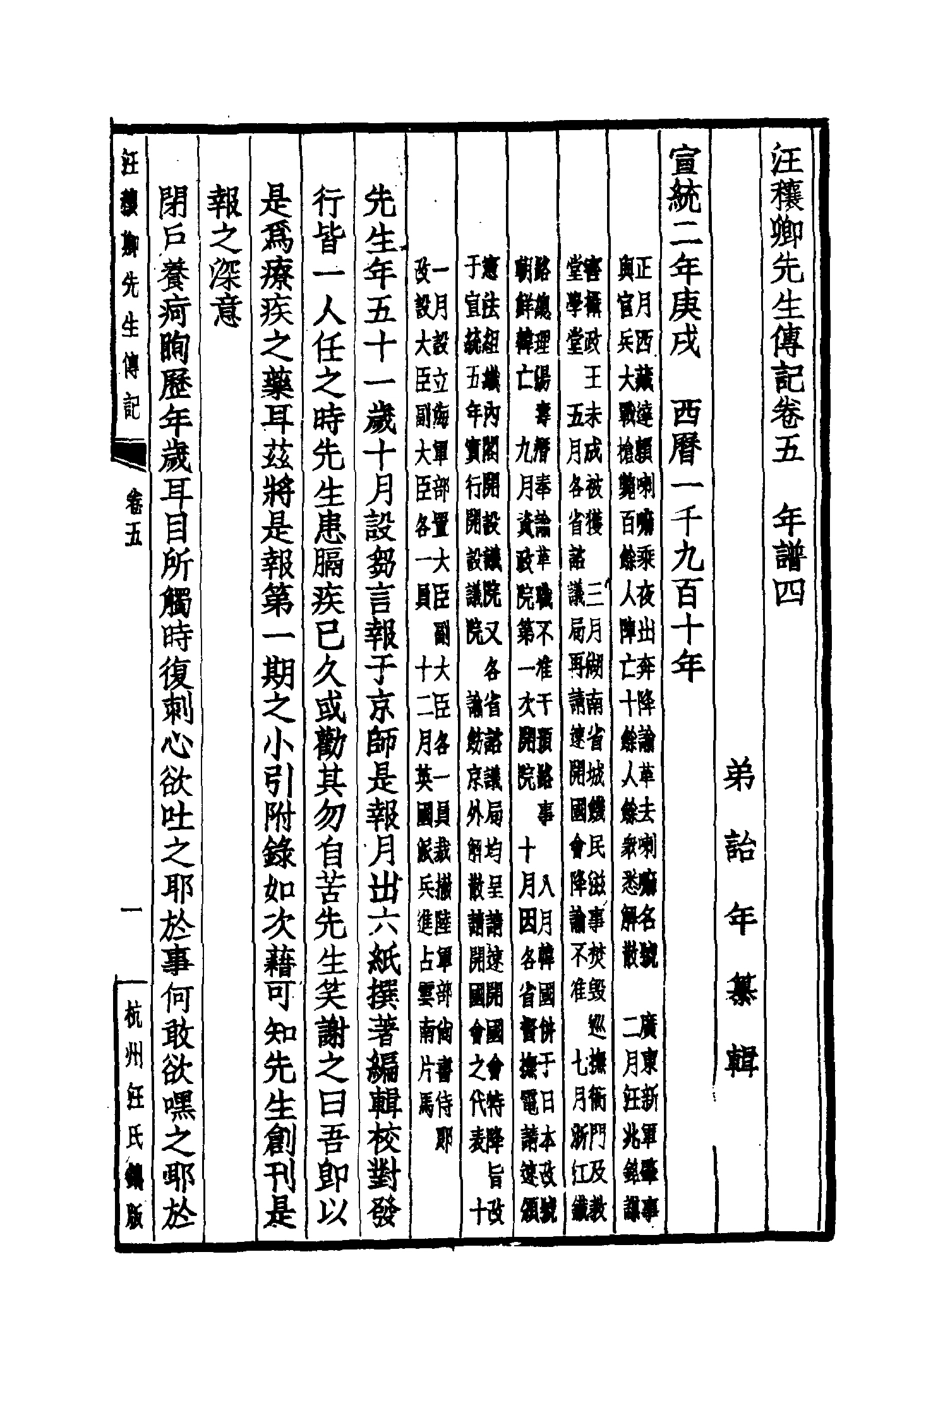 汪穰卿先生傳記卷五　年譜四
弟詒年纂輯
宣統二年庚戌　西曆一千九百十年
正月西藏達賴喇嘛乘夜出奔降諭革去喇嘛名號　廣東新軍肇事
與官兵大戰槍斃百餘人陣亡十餘人餘衆悉解散　二月汪兆銘謀
害攝政王未成被獲　三月湖南省城饑民滋事焚毀巡撫衙門及教
堂學堂　五月各省諮議局再請速開國會降諭不准　七月浙江鐵
路總理湯壽潛奉諭革職不准干預路事　八月韓國併于日本改號
朝鮮韓亡　九月資政院第一次開院　十月因各省督撫電請速頒
憲法組織內閣開設議院又各省諮議局均呈請速開國會特降旨改
于宣統五年實行開設議院　諭飭京外解散請開國會之代表　十
一月設立海軍部置大臣副大臣各一員裁撤陸軍部尙書侍郎
改設大臣副大臣各一員　十二月英國派兵進占雲南片馬
先生年五十一歲十月設芻言報于京師是報月出六紙撰著編輯校對發
行皆一人任之時先生患膈疾已久或勸其勿自苦先生笑謝之曰吾卽以
是爲療疾之藥耳茲將是報第一期之小引附錄如次藉可知先生創刊是
報之深意
閉戶養疴眴歷年歲耳目所觸時復刺心欲吐之耶於事何敢欲嘿之耶於
汪穰卿先生傳記
卷五
一
杭州汪氏鑄版